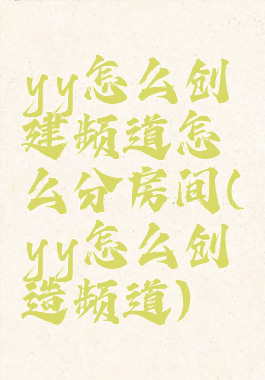 yy怎么创
建频道怎
么分房间(
yy怎么创
造频道)